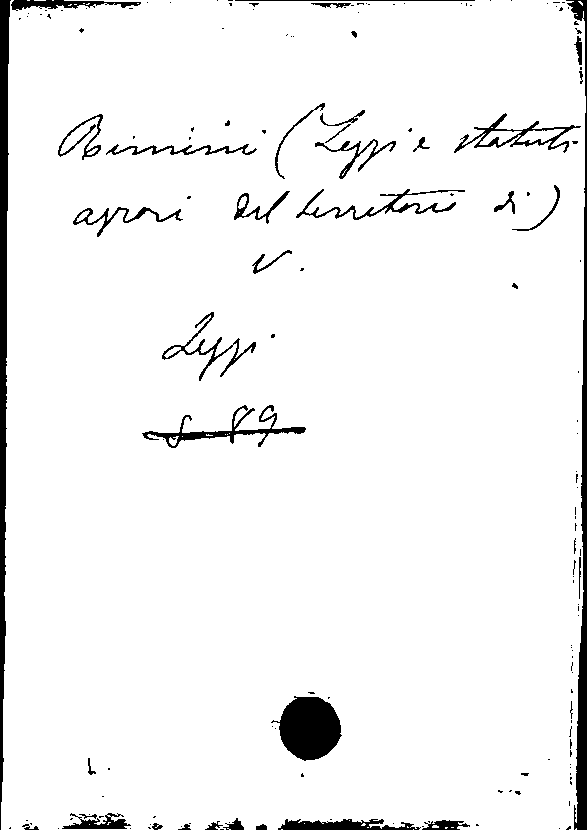 Rimini (Leggi e statuti
agrari del territorio di)
V.
Leggi
S 89